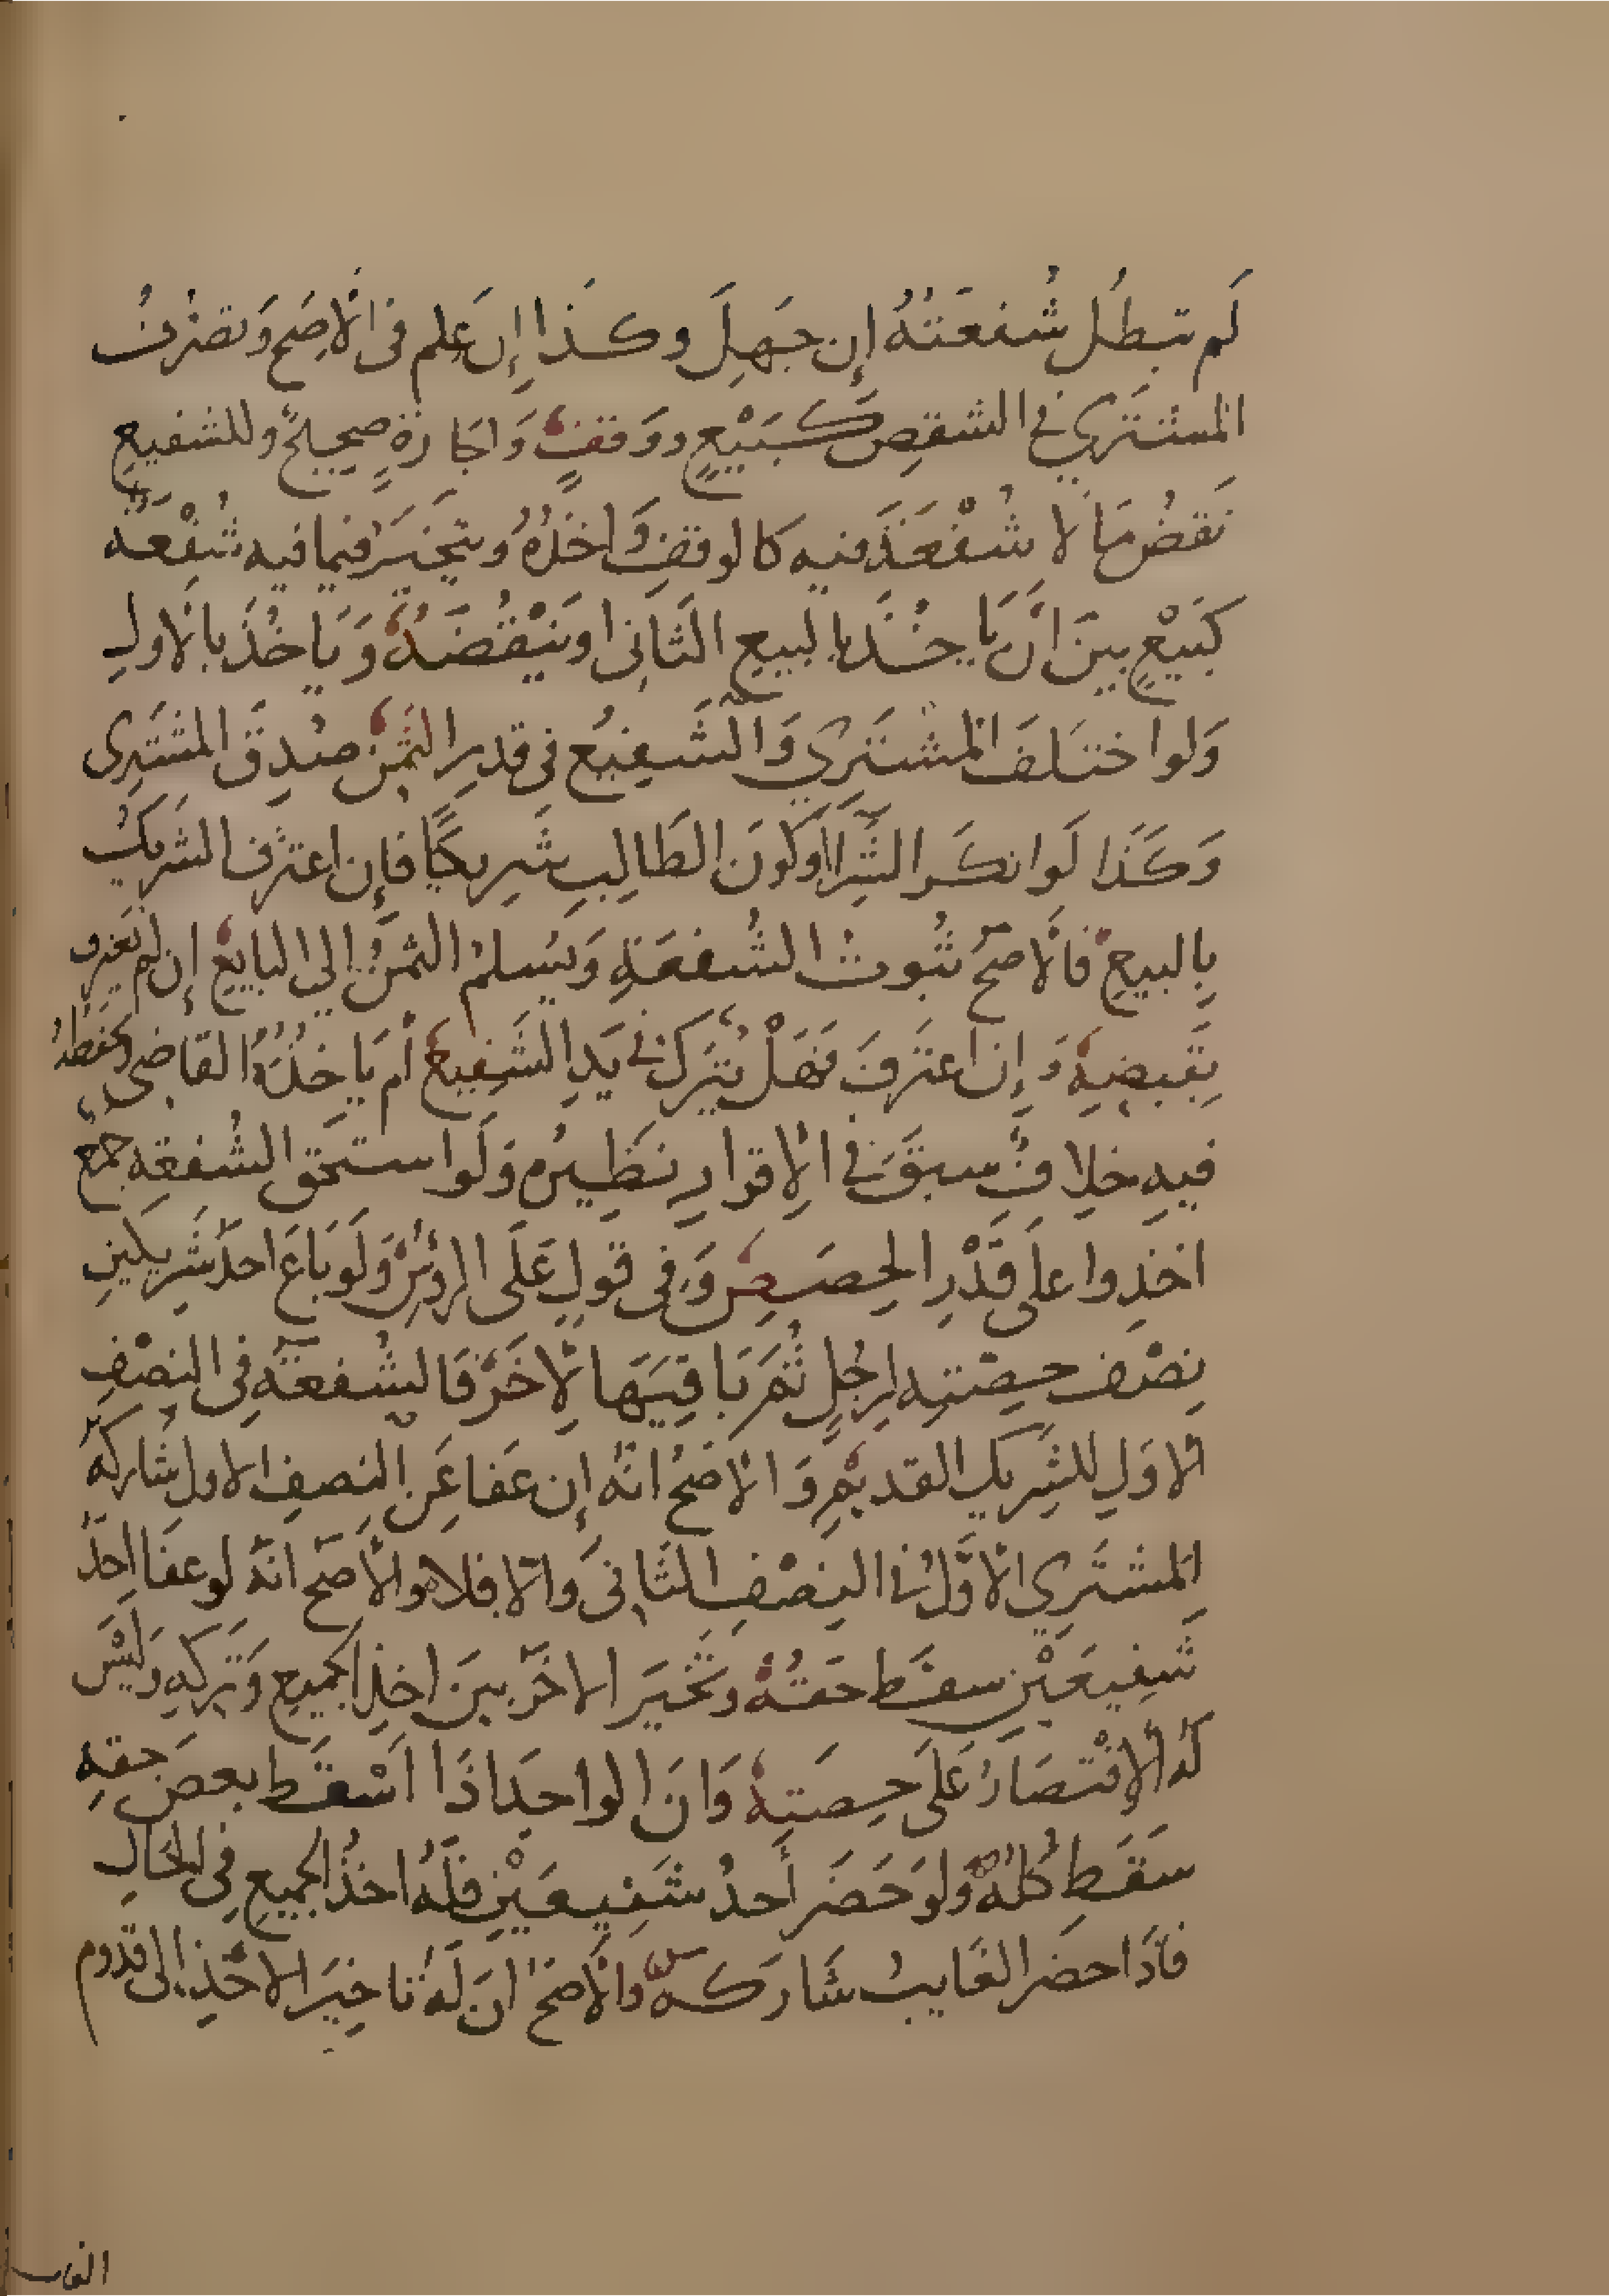 لَم تبطُل شُفعَتُهُ إِن جَهِلَ وكذا إِن عَلِم فى الأصَح وَتصَرُّفُ
المشترِي في الشقصِ كَبَيْعٍ ووَقفٍ وَاجَارَةٍ صحيحٌ وللشفيعِ
نَقضُ مَا لا شُفْعَةَ فيه كالوقفِ وَاخذُهُ ويتخَيَرُ فيما فيه شُفْعَة
كبَيْعٍ بينَ أن يَاخُذَ بالبيعِ الثَّانى او يَنْقُضَهُ وَيَاخُذَ بالاولِ
وَلو اختلَفَ المشتَرِي وَالشَّفِيعُ فى قدرِ الثمَنِ صُدِقَ المشتَرِى
وَكَذَا لَو انكَر الشِّرا اوكَونَ الطَالِبِ شَرِيكًا فإِن اعترَف الشرِيكُ
بِالبيعِ فالاصَحّ ثبُوتُ الشُفعَةِ وَيُسَلم الثمَنُ إِلى البايِعِ إِن لم يَعترِف
بِقَبضِهِ وَإِن اعترَفَ فهَلْ يُترَكُ في يَدِ الشَفِيعِ أم يَاخذُهُ القاضِى ويحفَظهُ
فيهِ خِلافٌ سبقَ في الإِقرارِ نظِيرُه وَلَو استحَق الشُفعَه جمعٌ
اخَذوا علَى قَدْرِ الحِصَصِ وَفى قَولٍ عَلَى الرؤسِ وَلَو بَاعَ احدُ شَرِيكَينِ
نِصْفَ حِصَّتِه لِرجُلٍ ثمَّ بَاقِيَهَا لآخَرَ فَالشُفعَةُ فى النصْفِ
الاوَلِ للشَرِيكِ القديمِ وَالاصَحُ انهُ إِن عَفا عَنِ النصِفِ الاولِ شَاركَهُ
المشتَرِي الأوَّلُ في النِصْفِ الثَانِى وَالا فلا والأصَحّ انهُ لو عفَا احدُ
شَفِيعَيْنِ سقَط حَقهُ وتخَيَرَ الاخَرُ بينَ اخذِ الجميعِ وَتَركِهِ وَليسَ
لهُ الاقْتصَارُ عَلَى حِصَتِهِ وَانَ الواحِدَ اذَا اسْقَط بعضَ حقِهِ
سَقَطَ كُلهُ ولَو حَضَر أَحدُ شَفِيعَيْنِ فَلَهُ اخذُ الجميعِ فِى الحَالِ
فاذَا حضَر الغَايبُ شَارَكهُ والأصَحُ انَ لَهُ تاخِيرَ الاخذِ إلى قدُوم